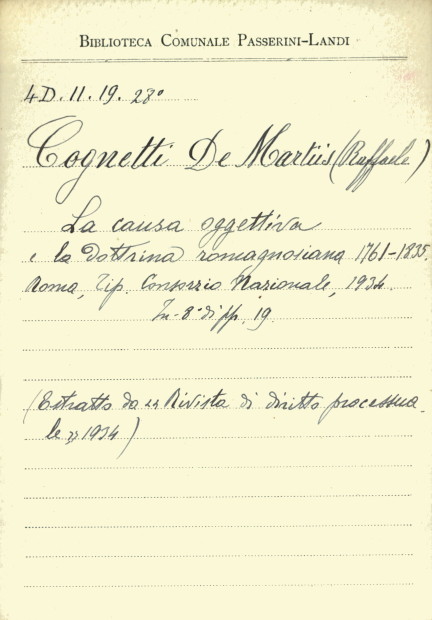 BIBLIOTECA COMUNALE PASSERINI-LANDI
4D.11.19.28°
Cognetti De Martiis (Raffaele)
La causa oggettiva
e la dottrina romagnosiana 1761-1835.
Roma, Tip. Consorzio Nazionale, 1934
In-8° di pp. 19
(Estratto da «Rivista di diritto processua-
le» 1934)